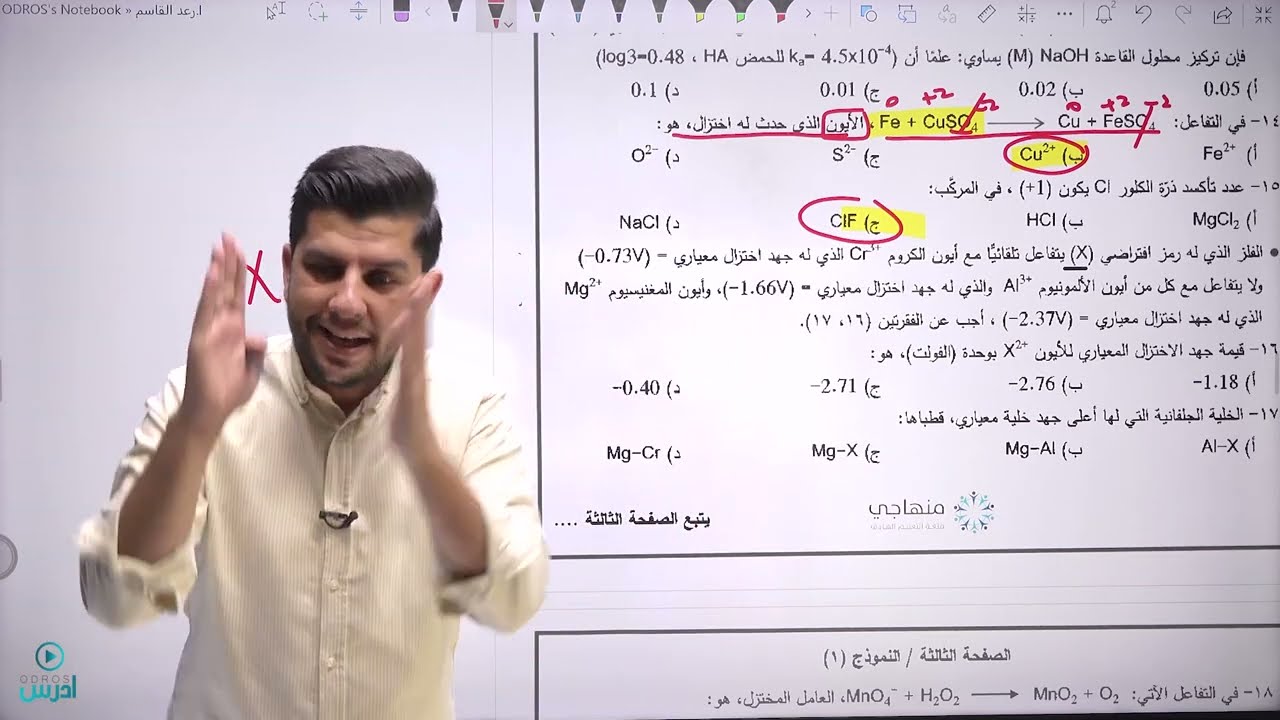 ODROS's Notebook » ا.رعد القاسم
فإن تركيز محلول القاعدة NaOH (M) يساوي: علمًا أن (kₐ= 4.5x10⁻⁴ للحمض HA ، log3=0.48)
أ) 0.05 ب) 0.02 ج) 0.01 د) 0.1
0 +2 -2 0 +2 -2
١٤- في التفاعل: Fe + CuSO₄ ⟶ Cu + FeSO₄ ، الأيون الذي حدث له اختزال، هو:
أ) Fe²⁺ ب) Cu²⁺ ج) S²⁻ د) O²⁻
١٥- عدد تأكسد ذرّة الكلور Cl يكون (1+) ، في المركّب:
أ) MgCl₂ ب) HCl ج) ClF د) NaCl
• الفلز الذي له رمز افتراضي (X) يتفاعل تلقائيًّا مع أيون الكروم Cr³⁺ الذي له جهد اختزال معياري = (−0.73V)
ولا يتفاعل مع كل من أيون الألمونيوم Al³⁺ والذي له جهد اختزال معياري = (−1.66V)، وأيون المغنيسيوم Mg²⁺
الذي له جهد اختزال معياري = (−2.37V) ، أجب عن الفقرتين (١٦، ١٧).
X
١٦- قيمة جهد الاختزال المعياري للأيون X²⁺ بوحدة (الفولت)، هو:
أ) −1.18 ب) −2.76 ج) −2.71 د) −0.40
١٧- الخلية الجلفانية التي لها أعلى جهد خلية معياري، قطباها:
أ) Al−X ب) Mg−Al ج) Mg−X د) Mg−Cr
منهاجي
متعة التعليم الهادف
يتبع الصفحة الثالثة ....
الصفحة الثالثة / النموذج (١)
١٨- في التفاعل الآتي: MnO₄⁻ + H₂O₂ ⟶ MnO₂ + O₂، العامل المختزل، هو:
ODROS
ادرس